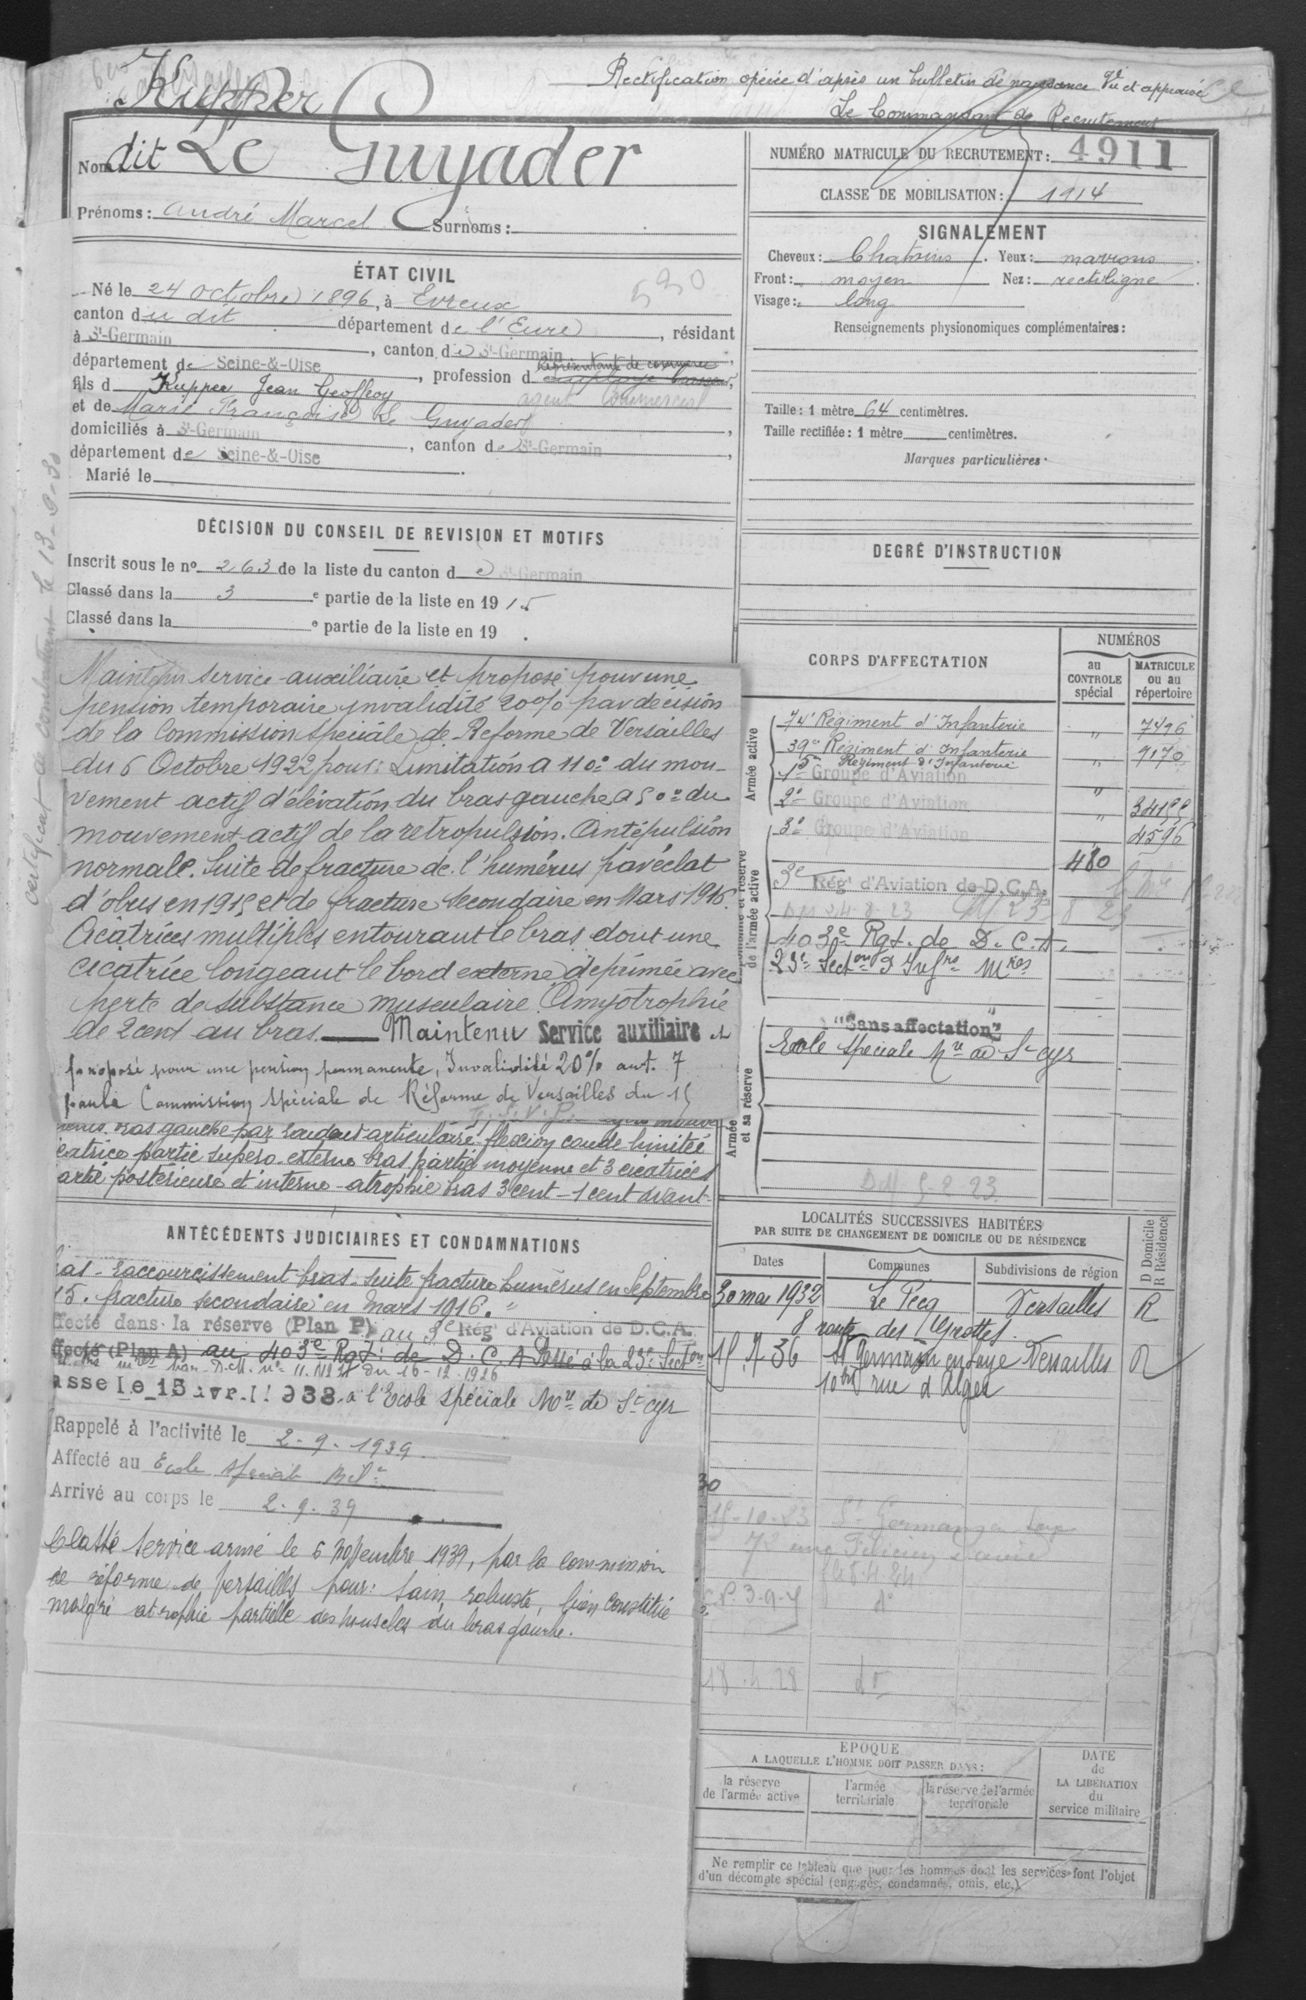 Rectification opérée d'après un bulletin de naissance Vu et approuvé
Le Commandant de Recrutement
Kupper
Nom dit Le Guyader
Prénoms : André Marcel Surnoms :
ÉTAT CIVIL
Né le 24 octobre 1896, à Evreux
530
canton du dit département de l'Eure, résidant
à St-Germain, canton de St-Germain
représentant de commerce
département de Seine-&-Oise, profession d
agent commercial
fils d Kupper Jean Geoffroy
et de Marie Françoise Le Guyader
domiciliés à St-Germain, canton de St-Germain,
département de Seine-&-Oise
Marié le
certificat de combattant le 13-9-30
DÉCISION DU CONSEIL DE REVISION ET MOTIFS
Inscrit sous le no 263 de la liste du canton d e St-Germain
Classé dans la 3 e partie de la liste en 1915
Classé dans la e partie de la liste en 19 .
Maintenu service auxiliaire et proposé pour une
pension temporaire invalidité 20% par décision
de la Commission Spéciale de Reforme de Versailles
du 6 Octobre 1922 pour : Limitation a 110° du mou-
vement actif d'élévation du bras gauche a 50° du
mouvement actif de la retropulsion. Antépulsion
normale. Suite de fracture de l'humérus par éclat
d'obus en 1915 et de fracture secondaire en Mars 1916.
Cicatrices multiples entourant le bras dont une
cicatrice longeant le bord externe déprimée avec
perte de substance musculaire. Amyotrophie
de 2 cent au bras. — Maintenu Service auxiliaire et
proposé pour une pension permanente, Invalidité 20% ant. 7
par la Commission spéciale de Réforme de Versailles du 15
T.S.V.P.
bras gauche par raideur articulaire flexion coude limitée
cicatrice partie supero-externe bras partie moyenne et 3 cicatrices
partie postérieure et interne - atrophie bras 3 cent - 1 cent avant-
ANTÉCÉDENTS JUDICIAIRES ET CONDAMNATIONS
bras - Raccourcissement bras - suite fracture humérus en Septembre
15. fracture secondaire en mars 1916. "
ffecté dans la réserve (Plan P) au 3e Rég' d'Aviation de D.C.A.
ffecté (Plan A) au 403e Rgt. de D.C.A Passé à la 23e Section
par D.M. du 16-12-1926
asse le 15 avr. 1938 a l'Ecole spéciale Mre de St cyr
Rappelé à l'activité le 2-9-1939
Affecté au Ecole spéciale Mil.
Arrivé au corps le 2-9-39
Classé service armé le 6 novembre 1939, par la commission
de réforme de Versailles pour : sain, robuste, bien constitué
malgré atrophie partielle des muscles du bras gauche.
NUMÉRO MATRICULE DU RECRUTEMENT : 4911
CLASSE DE MOBILISATION : 1914
SIGNALEMENT
Cheveux : Chatains . Yeux : marrons
Front : moyen Nez : rectiligne
Visage : long
Renseignements physionomiques complémentaires :
Taille : 1 mètre 64 centimètres.
Taille rectifiée : 1 mètre centimètres.
Marques particulières :
DEGRÉ D'INSTRUCTION
CORPS D'AFFECTATION
NUMÉROS
au CONTROLE spécial
MATRICULE ou au répertoire
Armée active
74e Régiment d'Infanterie " 7496
39e Régiment d'Infanterie " 9170
5e Régiment d'Infanterie
1er Groupe d'Aviation "
2e Groupe d'Aviation "
3e Groupe d'Aviation 4596
480
de l'armée active
3e Rég' d'Aviation de D.C.A.
403e Rgt. de D.C.A.
23e Section d'Infres Mres
Armée et sa réserve
"Sans affectation"
Ecole spéciale Mre de St cyr
LOCALITÉS SUCCESSIVES HABITÉES
PAR SUITE DE CHANGEMENT DE DOMICILE OU DE RÉSIDENCE
D Domicile
R Résidence
Dates Communes Subdivisions de région
30 mai 1932 Le Pecq Versailles R
8 route des Grottes.
15 7 36 St Germain en Laye Versailles R
10 bis rue d'Alger
30
15-10-23 St Germain en Laye
18.4.28 do
EPOQUE
A LAQUELLE L'HOMME DOIT PASSER DANS :
la réserve de l'armée active
l'armée territoriale
la réserve de l'armée territoriale
DATE de LA LIBÉRATION du service militaire
Ne remplir ce tableau que pour les hommes dont les services font l'objet
d'un décompte spécial (engagés, condamnés, omis, etc.)